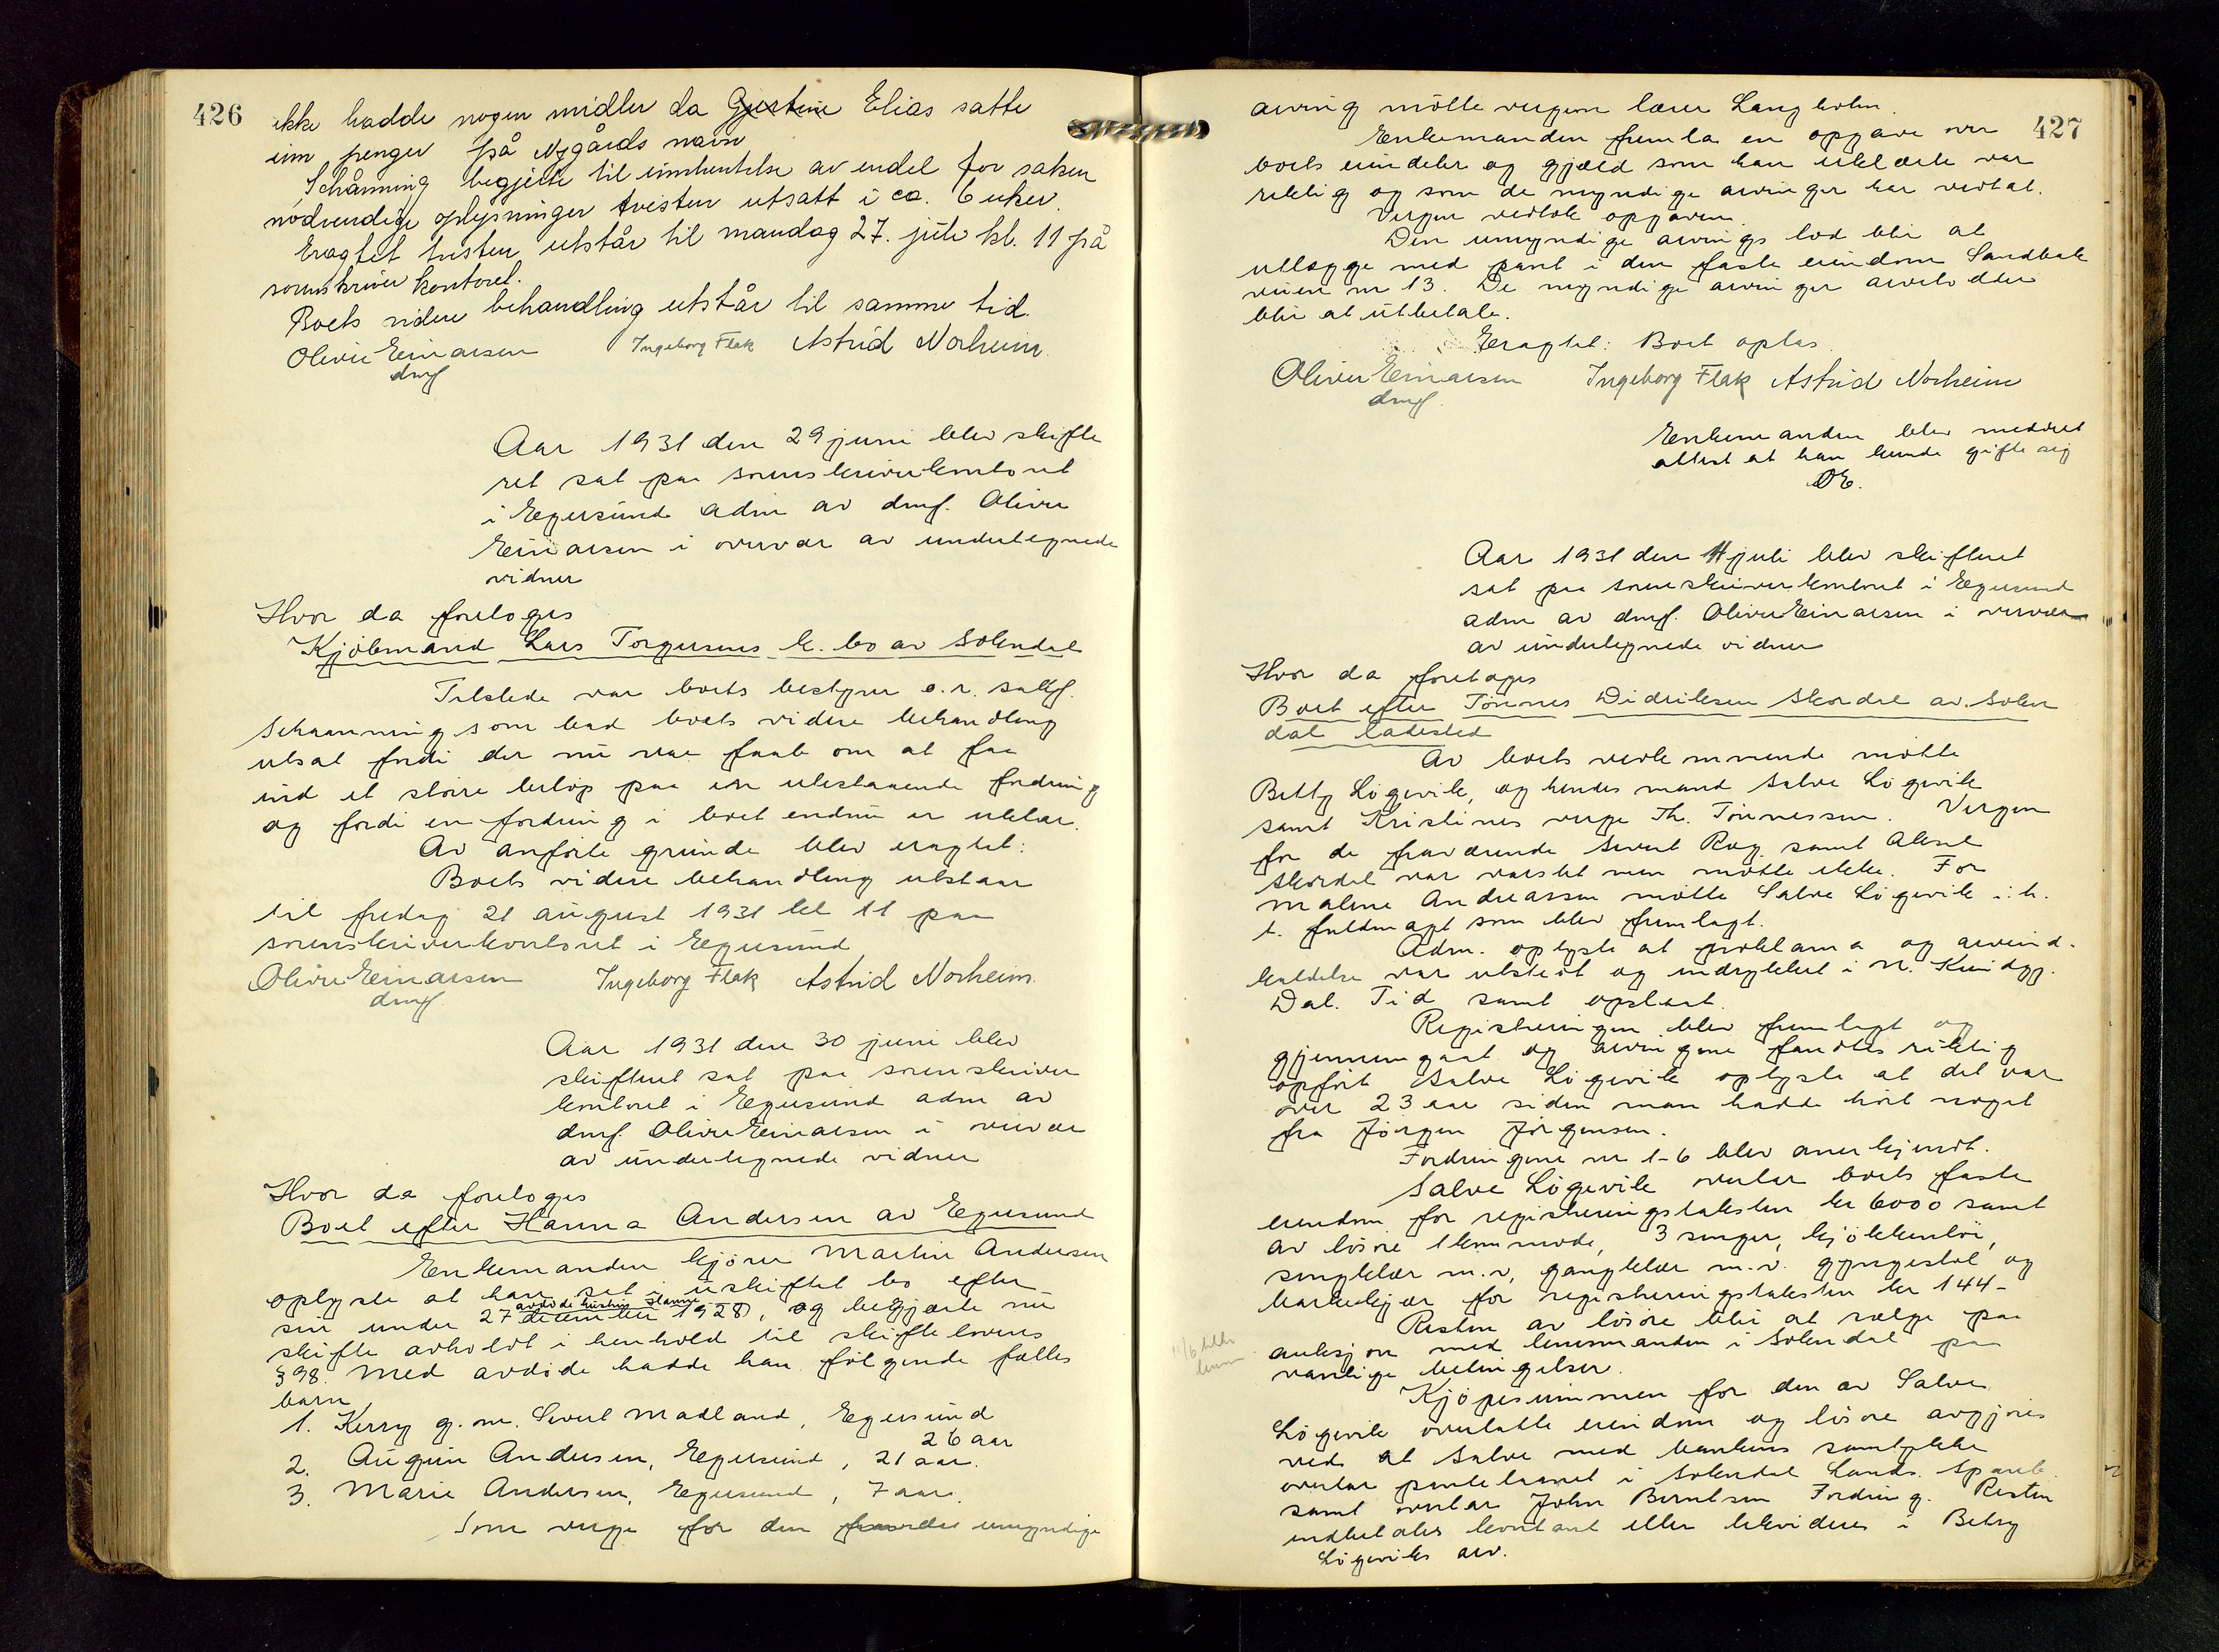 426
ikke hadde nogen midler da Gjertine Elias satte
inn penger på Nygårds navn
Schånning begjærte til innhentelse av endel for saken
nødvendige oplysninger tvisten utsatt i ca. 6 uker.
Eragtet tvisten utstår til mandag 27. juli kl. 11 på
sorenskriverkontoret.
Boets videre behandling utstår til samme tid.
Oliver Einarsen Ingeborg Flak Astrid Norheim
dmf
Aar 1931 den 29 juni blev skifte
ret sat paa sorenskriverkontoret
i Egersund adm av dmf. Oliver
Einarsen i overvær av undertegnede
vidner
Hvor da foretoges
Kjøbmand Lars Torgersens k. bo av Sokndal
Tilstede var boets bestyrer o.r. sakf.
Schaanning som bad boets videre behandling
utsat fordi der nu var haab om at faa
ind et større beløp paa en utestaaende fordring
og fordi en fordring i boet endnu er uklar.
Av anførte grunde blev eragtet:
Boets videre behandling utstaar
til fredag 21 august 1931 kl 11 paa
sorenskriverkontoret i Egersund
Oliver Einarsen Ingeborg Flak Astrid Norheim.
dmf.
Aar 1931 den 30 juni blev
skifteret sat paa sorenskriver
kontoret i Egersund adm av
dmf. Oliver Einarsen i overvær
av undertegnede vidner
Hvor da foretoges
Boet efter Hanna Andersen av Egersund
Enkemanden kjører Martin Andersen
oplyste at han sat i uskiftet bo efter
avdøde hustru
sin under 27 december 1928, og begjærte nu
skifte avholdt i henhold til skiftelovens
§ 98. Med avdøde hadde han følgende fælles
barn
1. Kerry g. m. Sivert Madland, Egersund
26 aar
2. Augun Andersen, Egersund, 21 aar.
3. Marie Andersen, Egersund, 7 aar.
Som verge for den umyndige
427
arving møtte vergen lærer Langholm.
Enkemanden fremla en opgave over
boets eiendeler og gjæld som han erklærte var
riktig og som de myndige arvinger har vedtat.
Vergen vedtok opgaven.
Den umyndige arvings lod blir at
utlægge med pant i den faste eiendom Sandbak
veien nr 13. De myndige arvinger arvelodder
blir at utbetale.
Eragtet: Boet opløs
Oliver Einarsen Ingeborg Flak Astrid Norheim
dmf.
Enkemanden blev meddelt
attest at han kunde gifte sig
OE.
Aar 1931 den 11 juli blev skifteret
sat paa sorenskriverkontoret i Egersund
adm av dmf. Oliver Einarsen i overvær
av undertegnede vidner
Hvor da foretoges
Boet efter Tønnes Didriksen Skordal av Sokn
dal ladested
Av boets vedkommende møtte
Betty Løgevik, og hendes mand Salve Løgevik
samt Kristines verge Th. Tønnessen. Vergen
for de fraværende Sivert Rog samt Aksel
Skordal var varslet men møtte ikke. For
Malene Andreassen møtte Salve Løgevik i.h.
t. fuldmagt som blev fremlagt.
Adm. oplyste at proklama og arveind-
kaldelse var utstedt og indrykket i N. Kundgj.
Dal. Tid samt opslaat.
Registreringen blev fremlagt og
gjennemgaat og arvingene fandtes riktig
opført. Salve Løgevik oplyste at det var
over 23 aar siden man hadde hørt noget
fra Jørgen Jørgensen.
Fordringene nr 1-6 blev anerkjendt.
Salve Løgevik overtar boets faste
eiendom for registreringstaksten kr 6000 samt
av løsøre 1 kommode, 3 senger, kjøkkentøi,
sengklær m.v, gangklær m.v. gyngestol og
for registreringstaksten kr 144-
Resten av løsøre blir at sælge paa
auksjon med lensmanden i Sokndal paa
vanlige betingelser.
Kjøpesummen for den av Salve
Løgevik overtatte eiendom og løsøre avgjøres
ved at Salve med bankens samtykke
overtar pantelaanet i Sokndal Lands. Spareb.
samt overtar John Berntsen Fordring. Resten
indbetales kontant eller likvideres i Betzy
Løgeviks arv.